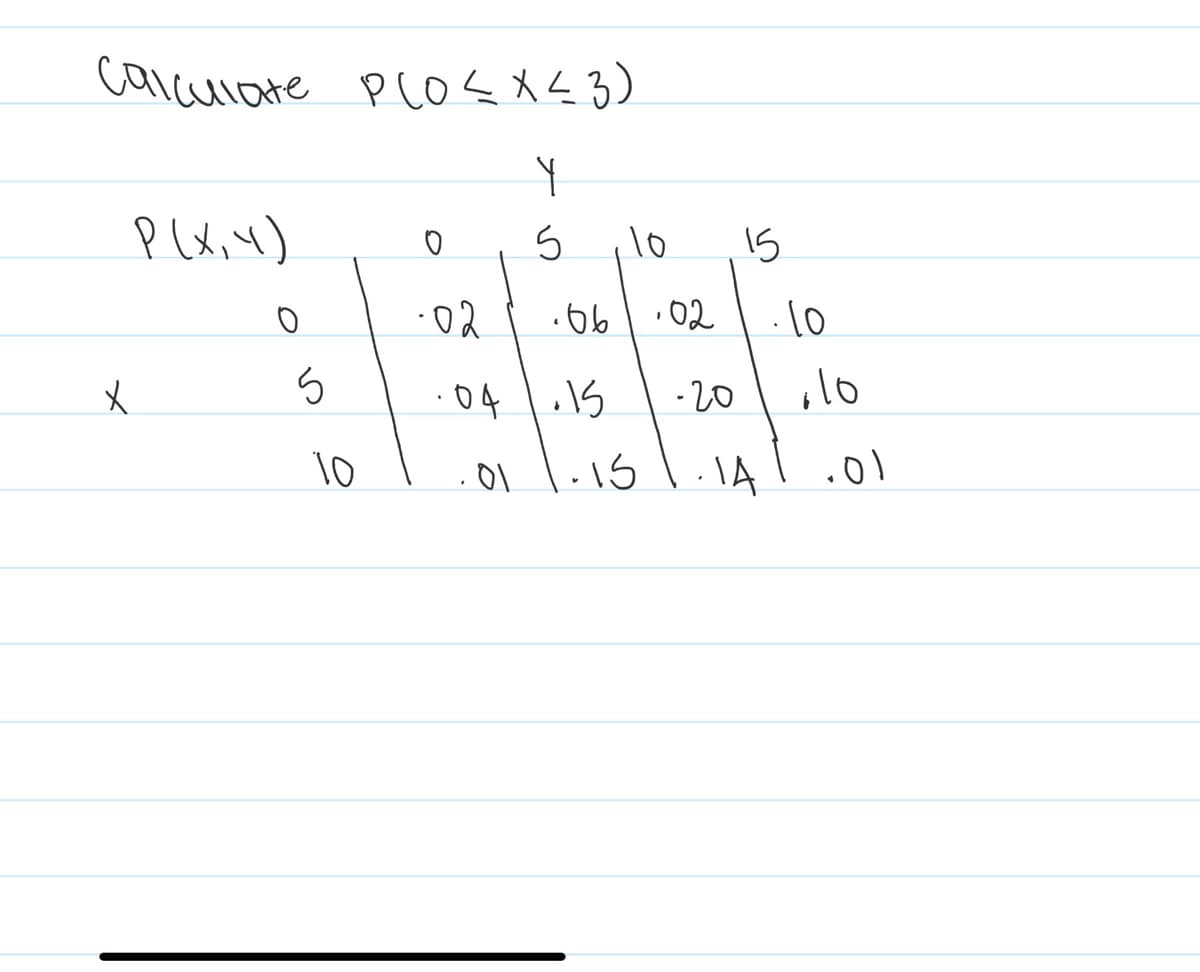 Calculate P(0 ≤ X ≤ 3)
Y
P(X,Y) 0 5 10 15
0 .02 .06 .02 .10
X 5 .04 .15 .20 .10
10 .01 .15 .14 .01